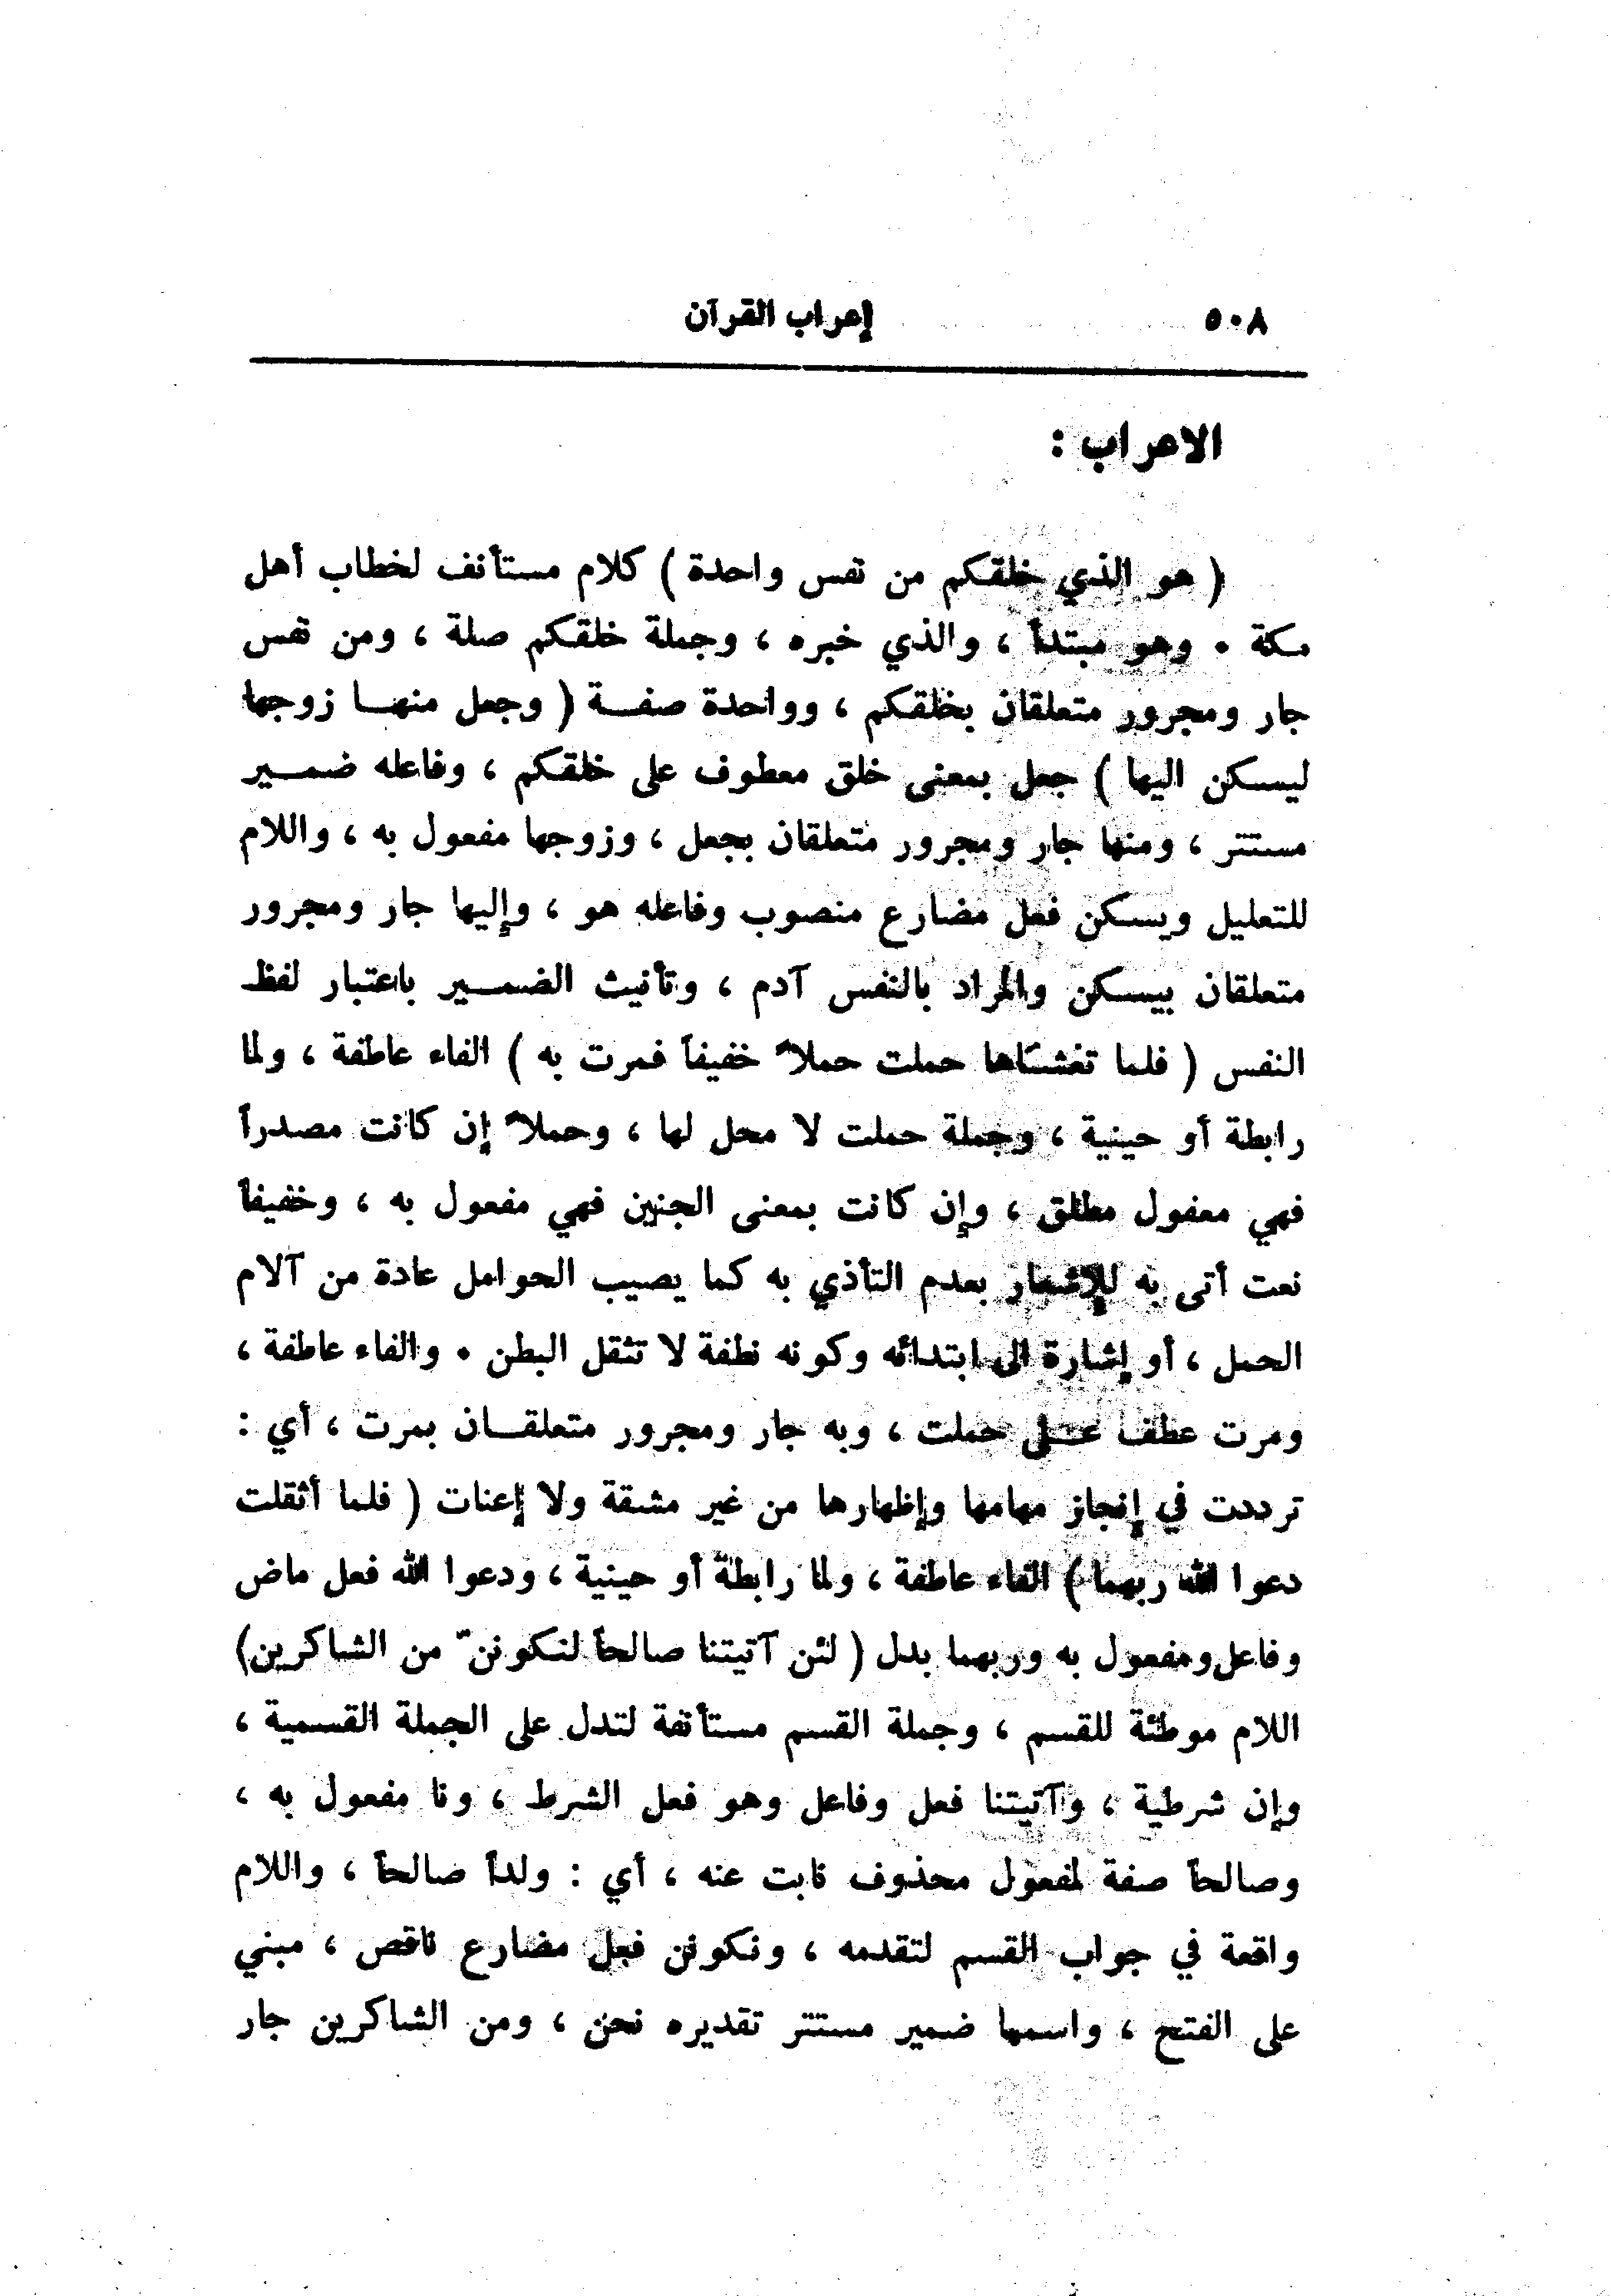 ٥٠٨ إعراب القرآن
الاعراب :
( هو الذي خلقكم من نفس واحدة ) كلام مستأنف لخطاب أهل
مكة ٠ وهو مبتدأ ، والذي خبره ، وجملة خلقكم صلة ، ومن نفس
جار ومجرور متعلقان بخلقكم ، وواحدة صفـــة ( وجعل منهـــا زوجها
ليسكن اليها ) جعل بمعنى خلق معطوف على خلقكم ، وفاعله ضمـــير
مستتر ، ومنها جار ومجرور متعلقان بجعل ، وزوجها مفعول به ، واللام
للتعليل ويسكن فعل مضارع منصوب وفاعله هو ، وإليها جار ومجرور
متعلقان بيسكن والمراد بالنفس آدم ، وتأنيث الضمـــير باعتبار لفظ
النفس ( فلما تغشّاها حملت حملاً خفيفاً فمرت به ) الفاء عاطفة ، ولما
رابطة أو حينية ، وجملة حملت لا محل لها ، وحملاً إن كانت مصدراً
فهي معفول مطلق ، وإن كانت بمعنى الجنين فهي مفعول به ، وخفيفاً
نعت أتى به للإشعار بعدم التأذي به كما يصيب الحوامل عادة من آلام
الحمل ، أو إشارة الى ابتدائه وكونه نطفة لا تثقل البطن ٠ والفاء عاطفة ،
ومرت عطف عـــلى حملت ، وبه جار ومجرور متعلقـــان بمرت ، أي :
ترددت في إنجاز مهامها وإظهارها من غير مشقة ولا إعنات ( فلما أثقلت
دعوا الله ربهما ) الفاء عاطفة ، ولما رابطة أو حينية ، ودعوا الله فعل ماض
وفاعل ومفعول به وربهما بدل ( لئن آتيتنا صالحاً لنكوننّ من الشاكرين)
اللام موطئة للقسم ، وجملة القسم مستأنفة لتدل على الجملة القسمية ،
وإن شرطية ، وآتيتنا فعل وفاعل وهو فعل الشرط ، ونا مفعول به ،
وصالحاً صفة لمفعول محذوف نابت عنه ، أي : ولداً صالحاً ، واللام
واقعة في جواب القسم لتقدمه ، ونكونن فعل مضارع ناقص ، مبني
على الفتح ، واسمها ضمير مستتر تقديره نحن ، ومن الشاكرين جار